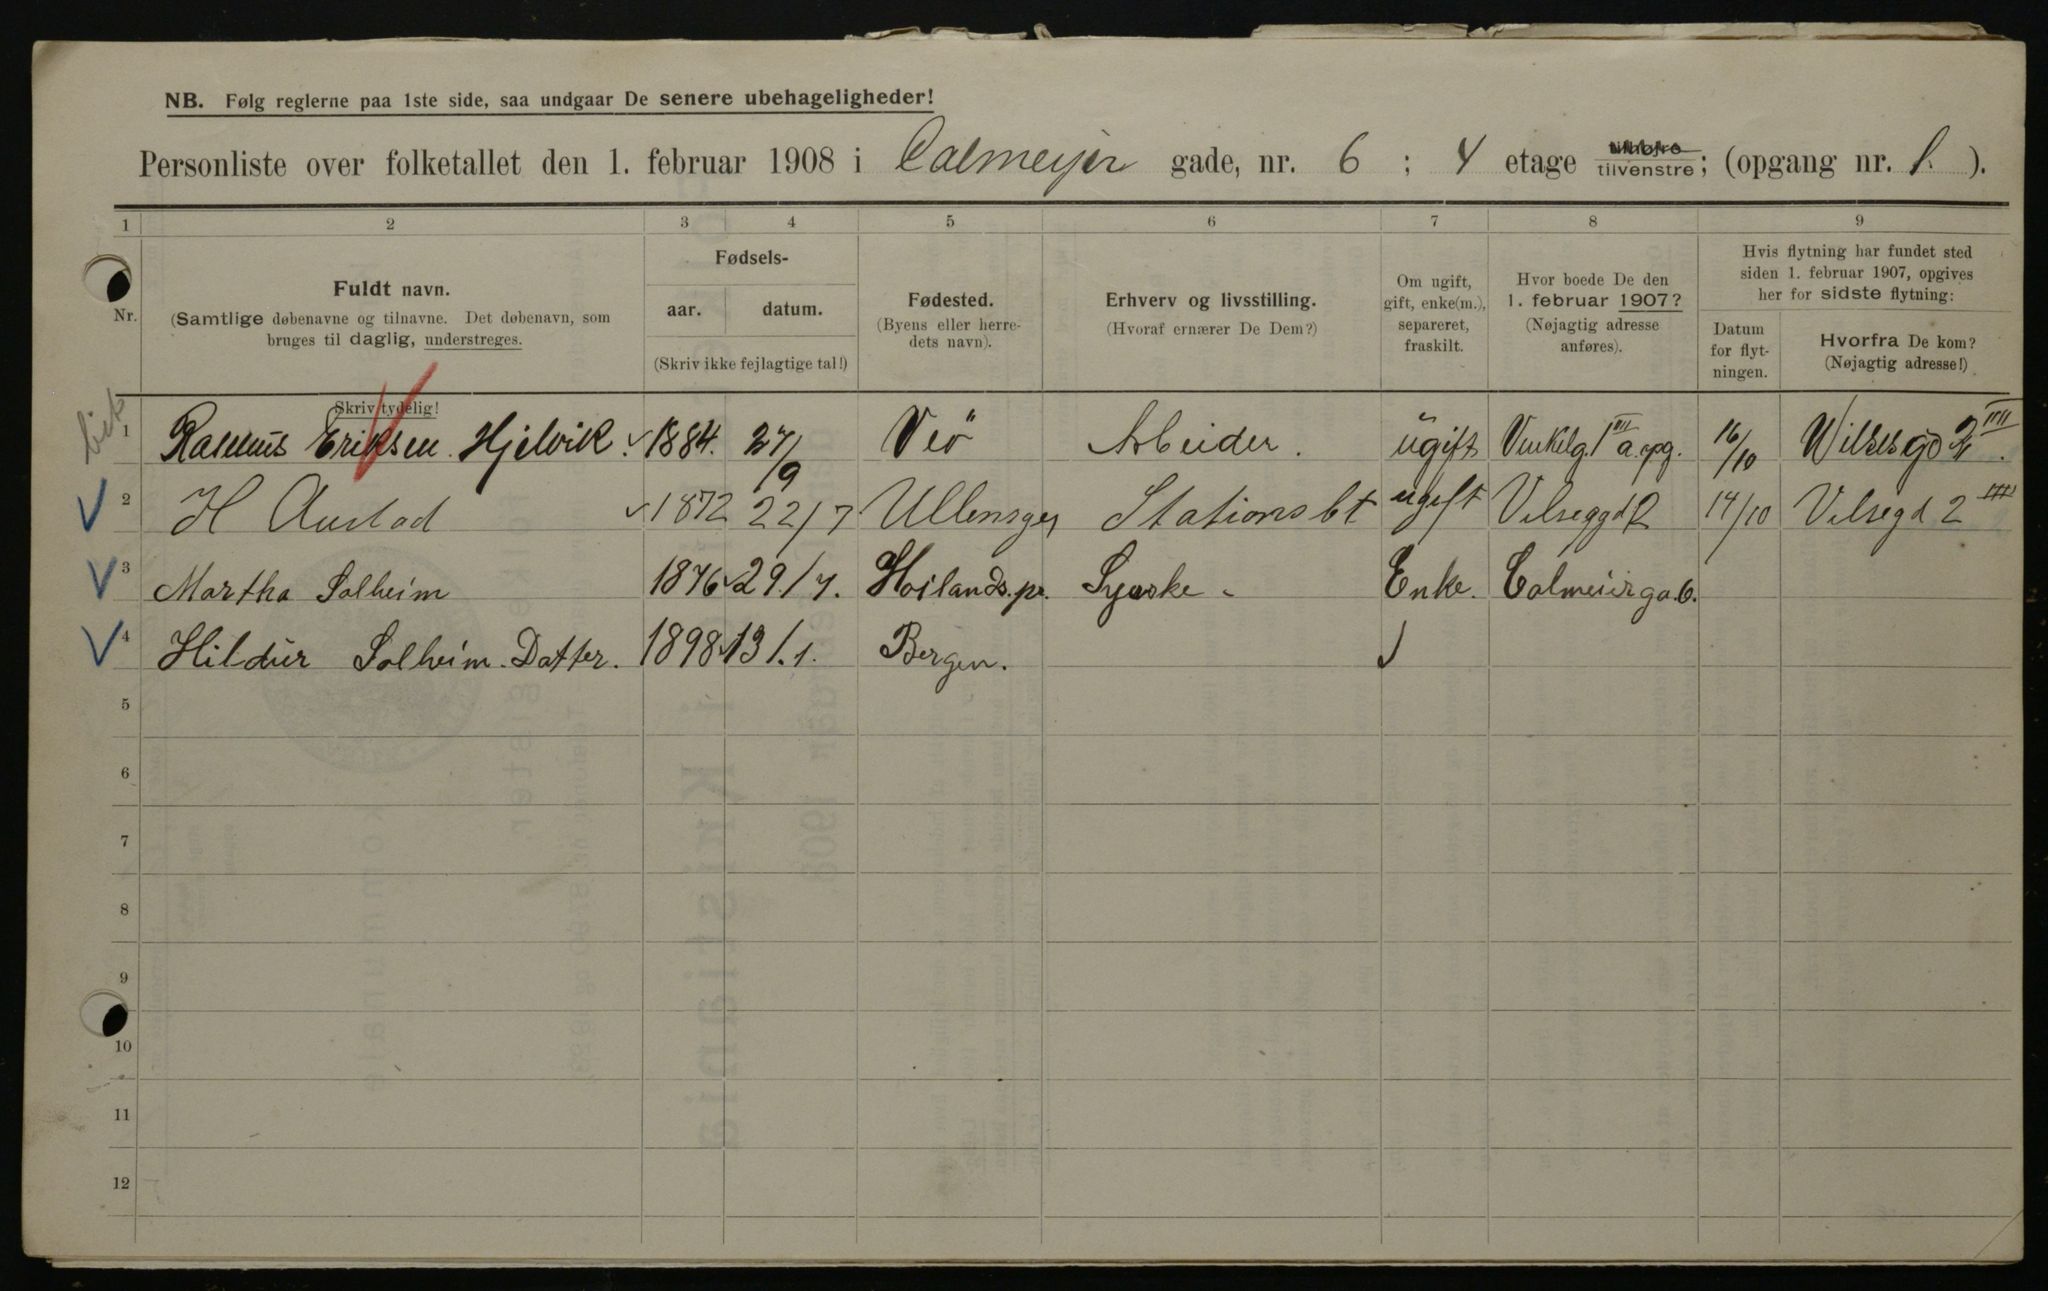 NB. Følg reglerne paa 1ste side, saa undgaar De senere ubehageligheder!
Personliste over folketallet den 1. februar 1908 i Calmeyer gade, nr. 6 ; 4 etage tilhøire tilvenstre; (opgang nr. 1. ).
1 2 3 4 5 6 7 8 9
Nr.
Fuldt navn.
(Samtlige døbenavne og tilnavne. Det døbenavn, som
bruges til daglig, understreges.
Skriv tydelig!
Fødsels-
aar. datum.
(Skriv ikke fejlagtige tal!)
Fødested.
(Byens eller herre-
dets navn).
Erhverv og livsstilling.
(Hvoraf ernærer De Dem?)
Om ugift,
gift, enke(m.),
separeret,
fraskilt.
Hvor boede De den
1. februar 1907?
(Nøjagtig adresse
anføres).
Hvis flytning har fundet sted
siden 1. februar 1907, opgives
her for sidste flytning:
Datum
for flyt-
ningen.
Hvorfra De kom?
(Nøjagtig adresse!)
1 Rasmus Eriksen Hjelvik. 1884. 27/9 Veö Arbeider. ugift Vinkelg. 1 a. opg. 16/10 Wilsesgd 2
2 H Austad 1872 22/7 Ullensger Stationsbt ugift Vilseggd 2 14/10 Vilsegd 2
3 Martha Solheim 1876 29/7. Hoilands.pr. Syerske Enke. Calmeierga. 6.
4 Hildur Solheim. Datter. 1898 13/.1. Bergen.
5
6
7
8
9
10
11
12